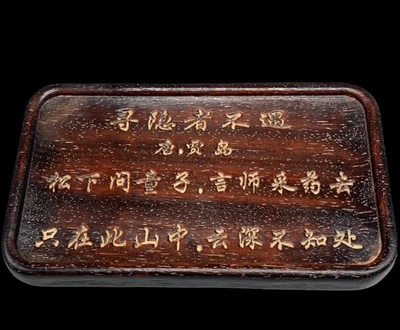 寻隐者不遇
唐,贾岛
松下问童子,言师采药去
只在此山中,云深不知处